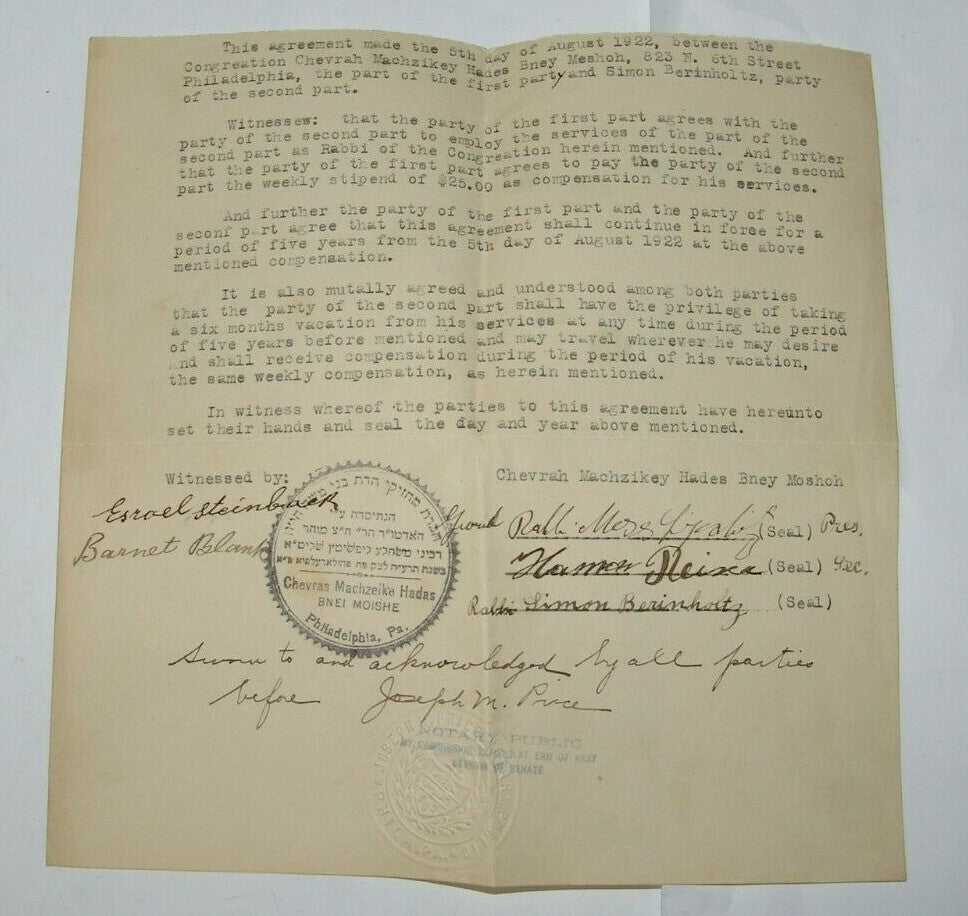 This agreement made the 5th day of August 1922, between the
Congreation Chevrah Machzikey Hades Bney Meshoh, 823 N. 6th Street
Philadelphia, the part of the first party and Simon Berinholtz, party
of the second part.
Witnessew: that the party of the first part agrees with the
party of the second part to employ the services of the part of the
second part as Rabbi of the Congreation herein mentioned. And further
that the party of the first part agrees to pay the party of the second
part the weekly stipend of $25.00 as compensation for his services.
And further the party of the first part and the party of the
seconf part agree that this agreement shall continue in force for a
period of five years from the 5th day of August 1922 at the above
mentioned compensation.
It is also mutally agreed and understood among both parties
that the party of the second part shall have the privilege of taking
a six months vacation from his services at any time during the period
of five years before mentioned and may travel wherever he may desire
and shall receive compensation during the period of his vacation,
the same weekly compensation, as herein mentioned.
In witness whereof the parties to this agreement have hereunto
set their hands and seal the day and year above mentioned.
Witnessed by:
Chevrah Machzikey Hades Bney Moshoh
Esrael Steinbuck
Barnet Blank
מחזיקי הדת בני
הנתיסדה ע"י
Chevras Machzeike Hadas
BNEI MOISHE
Philadelphia, Pa.
Rabbi (Seal) Pres.
(Seal) Sec.
Rabbi Simon Berinholtz (Seal)
Sworn to and acknowledged by all parties
before Joseph M. Price
NOTARY PUBLIC
MY COMMISSION EXPIRES AT END OF NEXT
SESSION OF SENATE